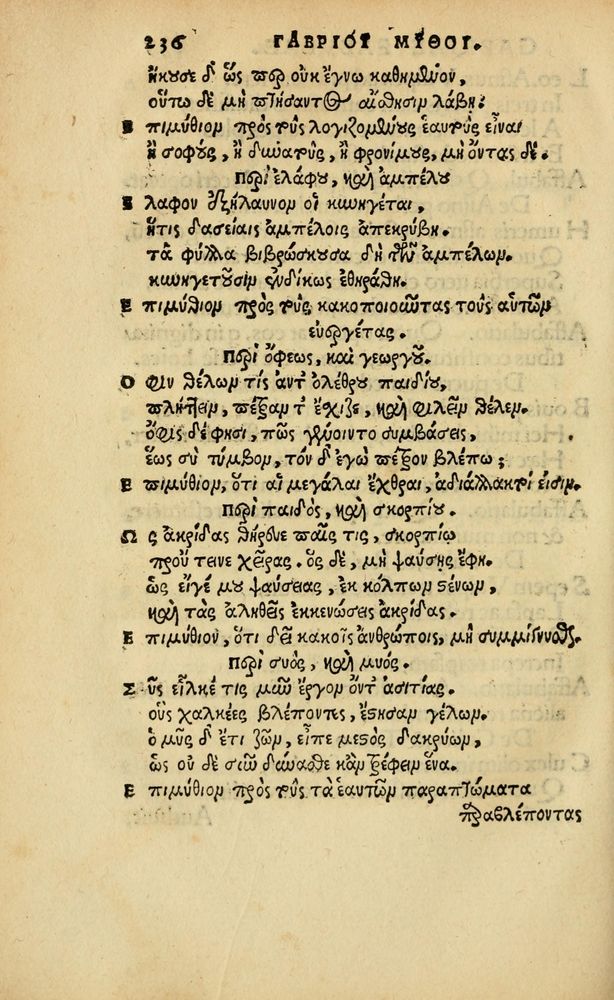 236 ΓΑΒΡΙΟΥ ΜΥΘΟΙ.
ἤκουσε δ' ὥς περ οὐκ ἔγνω καθημένον,
οὕτω δὲ μὴ πτήσαντος αἴσθησιν λάβῃ.
Ε πιμύθιον πρὸς τοὺς λογιζομένους ἑαυτοὺς εἶναι
ἢ σοφούς, ἢ δυνατούς, ἢ φρονίμους, μὴ ὄντας δέ.
Περὶ ἐλάφου, καὶ ἀμπέλου
Ε λαφον ἐξήλαυνον οἱ κυνηγέται,
ἥτις δασείαις ἀμπέλοις ἀπεκρύβη.
τὰ φύλλα βιβρώσκουσα δὴ τῶν ἀμπέλων.
κυνηγετοῦσιν ἐνδίκως ἐθηράθη.
Ε πιμύθιον πρὸς τοὺς κακοποιοῦντας τοὺς αὐτῶν
εὐεργέτας.
Περὶ ὄφεως, καὶ γεωργοῦ.
Ο φιν θέλων τίς ἀντ' ὀλέθρου παιδίου,
πλήττειν, πέτραν τ' ἔσχιζε, καὶ φιλεῖν θέλεν.
ὄφις δ' ἔφησι, πῶς γένοιντο συμβάσεις,
ἕως σὺ τύμβον, τόν δ' ἐγὼ πέτρον βλέπω;
Ε πιμύθιον, ὅτι αἱ μεγάλαι ἔχθραι, ἀδιάλλακτοί εἰσιν.
Περὶ παιδὸς, καὶ σκορπίου.
Ω ς ἀκρίδας θήρευε παῖς τις, σκορπίῳ
προὔτεινε χεῖρας. ὃς δὲ, μὴ ψαύσῃς ἔφη.
ὡς εἴγέ μου ψαύσειας, ἐκ κόλπων ξένων,
καὶ τὰς ἀληθεῖς ἐκκενώσεις ἀκρίδας.
Ε πιμύθιον, ὅτι δεῖ κακοῖς ἀνθρώποις, μὴ συμμίγνυσθαι.
Περὶ συὸς, καὶ μυός.
Σ ῦς εἷλκέ τις μῦν ἔργον ὄντ' ἀσιτίας.
οὓς χαλκέες βλέποντες, ἔστησαν γέλων.
ὁ μῦς δ' ἔτι ζῶν, εἶπε μεστὸς δακρύων,
ὡς οὐ δὲ σῦν δύνασθε κἂν τρέφειν ἕνα.
Ε πιμύθιον πρὸς τοὺς τὰ ἑαυτῶν παραπτώματα
παραβλέποντας